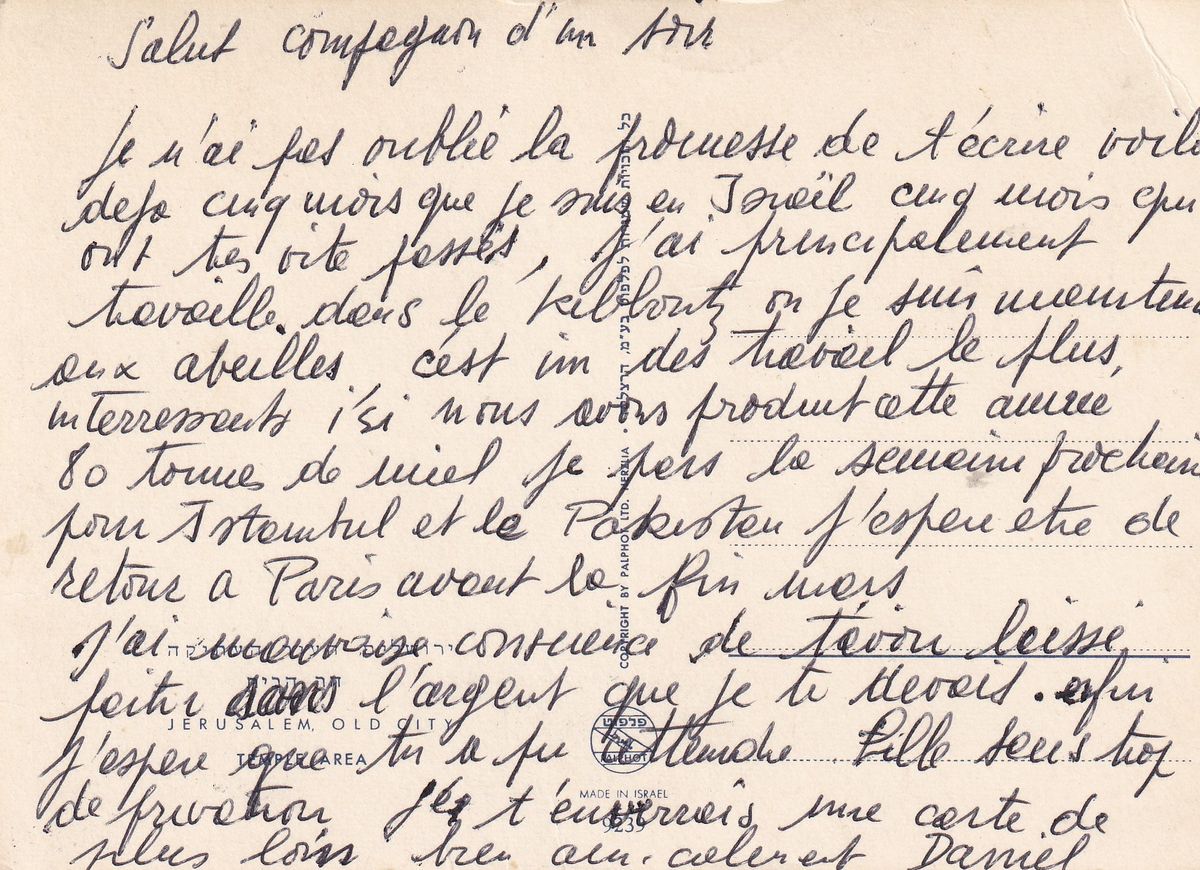 Salut compagnon d'un soir
Je n'ai pas oublié la promesse de t'écrire voila
deja cinq mois que je suis en Israël cinq mois qui
ont tres vite passés, j'ai principalement
travaille dans le Kibboutz ou je suis maintenant
aux abeilles c'est un des travail le plus,
interressants i'si nous avons produit cette année
80 tonnes de miel je pars la semaine prochain
pour Istambul et le Pakistan j'espere etre de
retour a Paris avant la fin mars
j'ai mauvaise conscience de t'avoir laissé
partir sans l'argent que je te devais. enfin
j'espere que tu a pu attendre Lille sans trop
de privation je t'enverrais une carte de
plus loin bien amicalement Daniel
COPYRIGHT BY PALPHOT LTD. HERZLIA
ירושלים, העיר העתיקה
הר הבית
JERUSALEM, OLD CITY
TEMPLE AREA
פלפוט
PALPHOT
MADE IN ISRAEL
9239